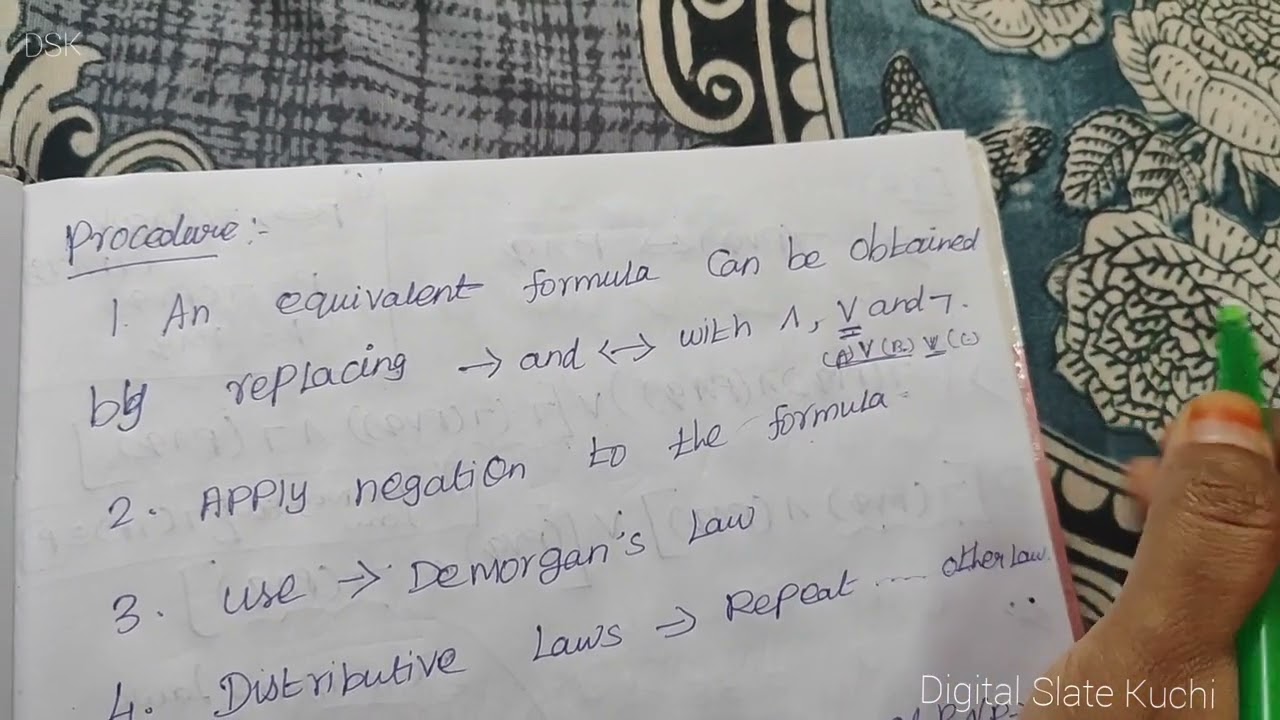 DSK
Procedure:-
1. An equivalent formula can be obtained
by replacing → and ↔ with ∧, ∨ and ¬.
(A) ∨ (B) ∨ (C)
2. APPly negation to the formula
3. use → Demorgan's Law
4. Distributive Laws → Repeat ..... other law.
Digital Slate Kuchi